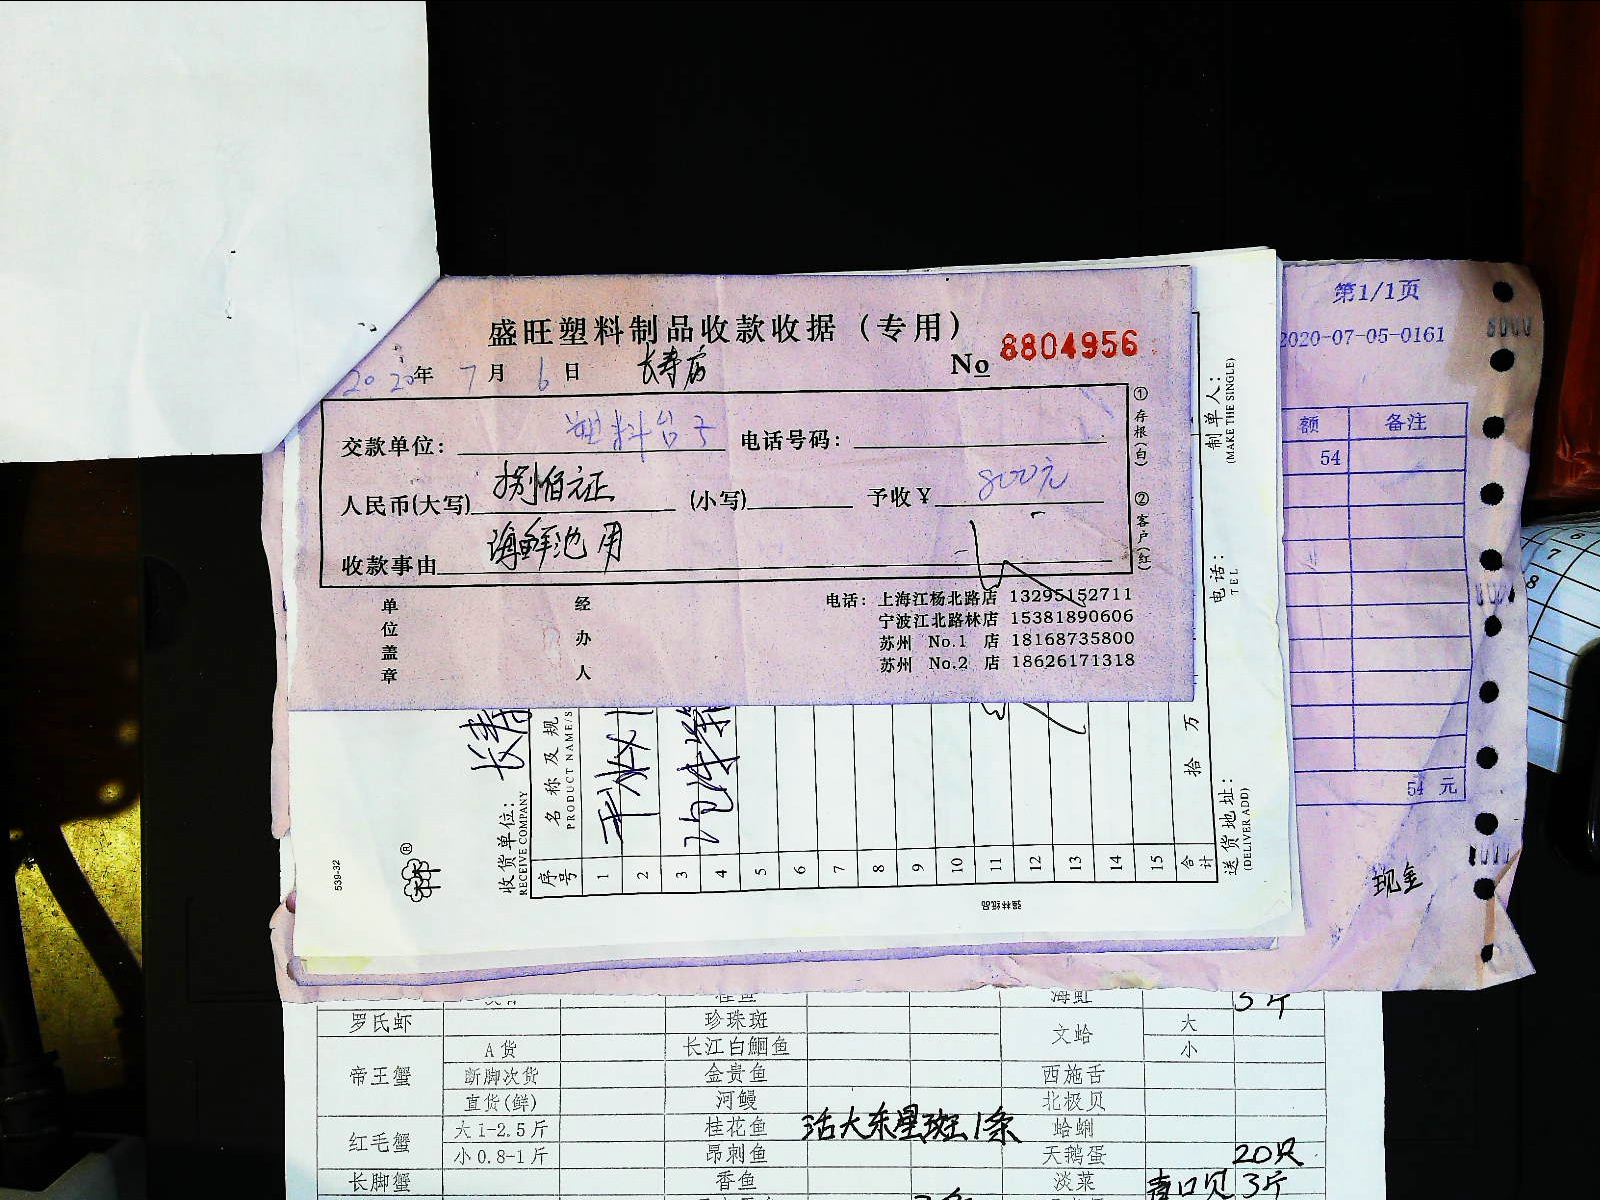 盛旺塑料制品收款收据（专用）
2020年 7月 6日 长寿店 No 8804956
交款单位: 塑料台子 电话号码:
人民币(大写) 捌佰元正 (小写) 予收¥ 800元
收款事由 海鲜池用
①存根(白) ②客户(红)
单位盖章 经办人
电话: 上海江杨北路店 13295152711
宁波江北路林店 15381890606
苏州 No.1 店 18168735800
苏州 No.2 店 18626171318
第1/1页
2020-07-05-0161
额 备注
54
54 元
现金
制单人:
(MAKE THE SINGLE)
电话:
TEL
送货地址:
(DELIVER ADD)
539-32
收货单位: 长寿
RECEIVE COMPANY
序号 名称及规
PRODUCT NAME/S
1
2
3
4
5
6
7
8
9
10
11
12
13
14
15
合计 拾 万
强林纸品
桂鱼 海虹 5斤
罗氏虾 珍珠斑 文蛤 大
帝王蟹 A货 长江白鮰鱼 小
断脚次货 金贵鱼 西施舌
直货(鲜) 河鳗 北极贝
红毛蟹 大1-2.5斤 桂花鱼 活大东星斑1条 蛤蜊
小0.8-1斤 昂刺鱼 天鹅蛋 20只
长脚蟹 香鱼 淡菜 青口贝 3斤